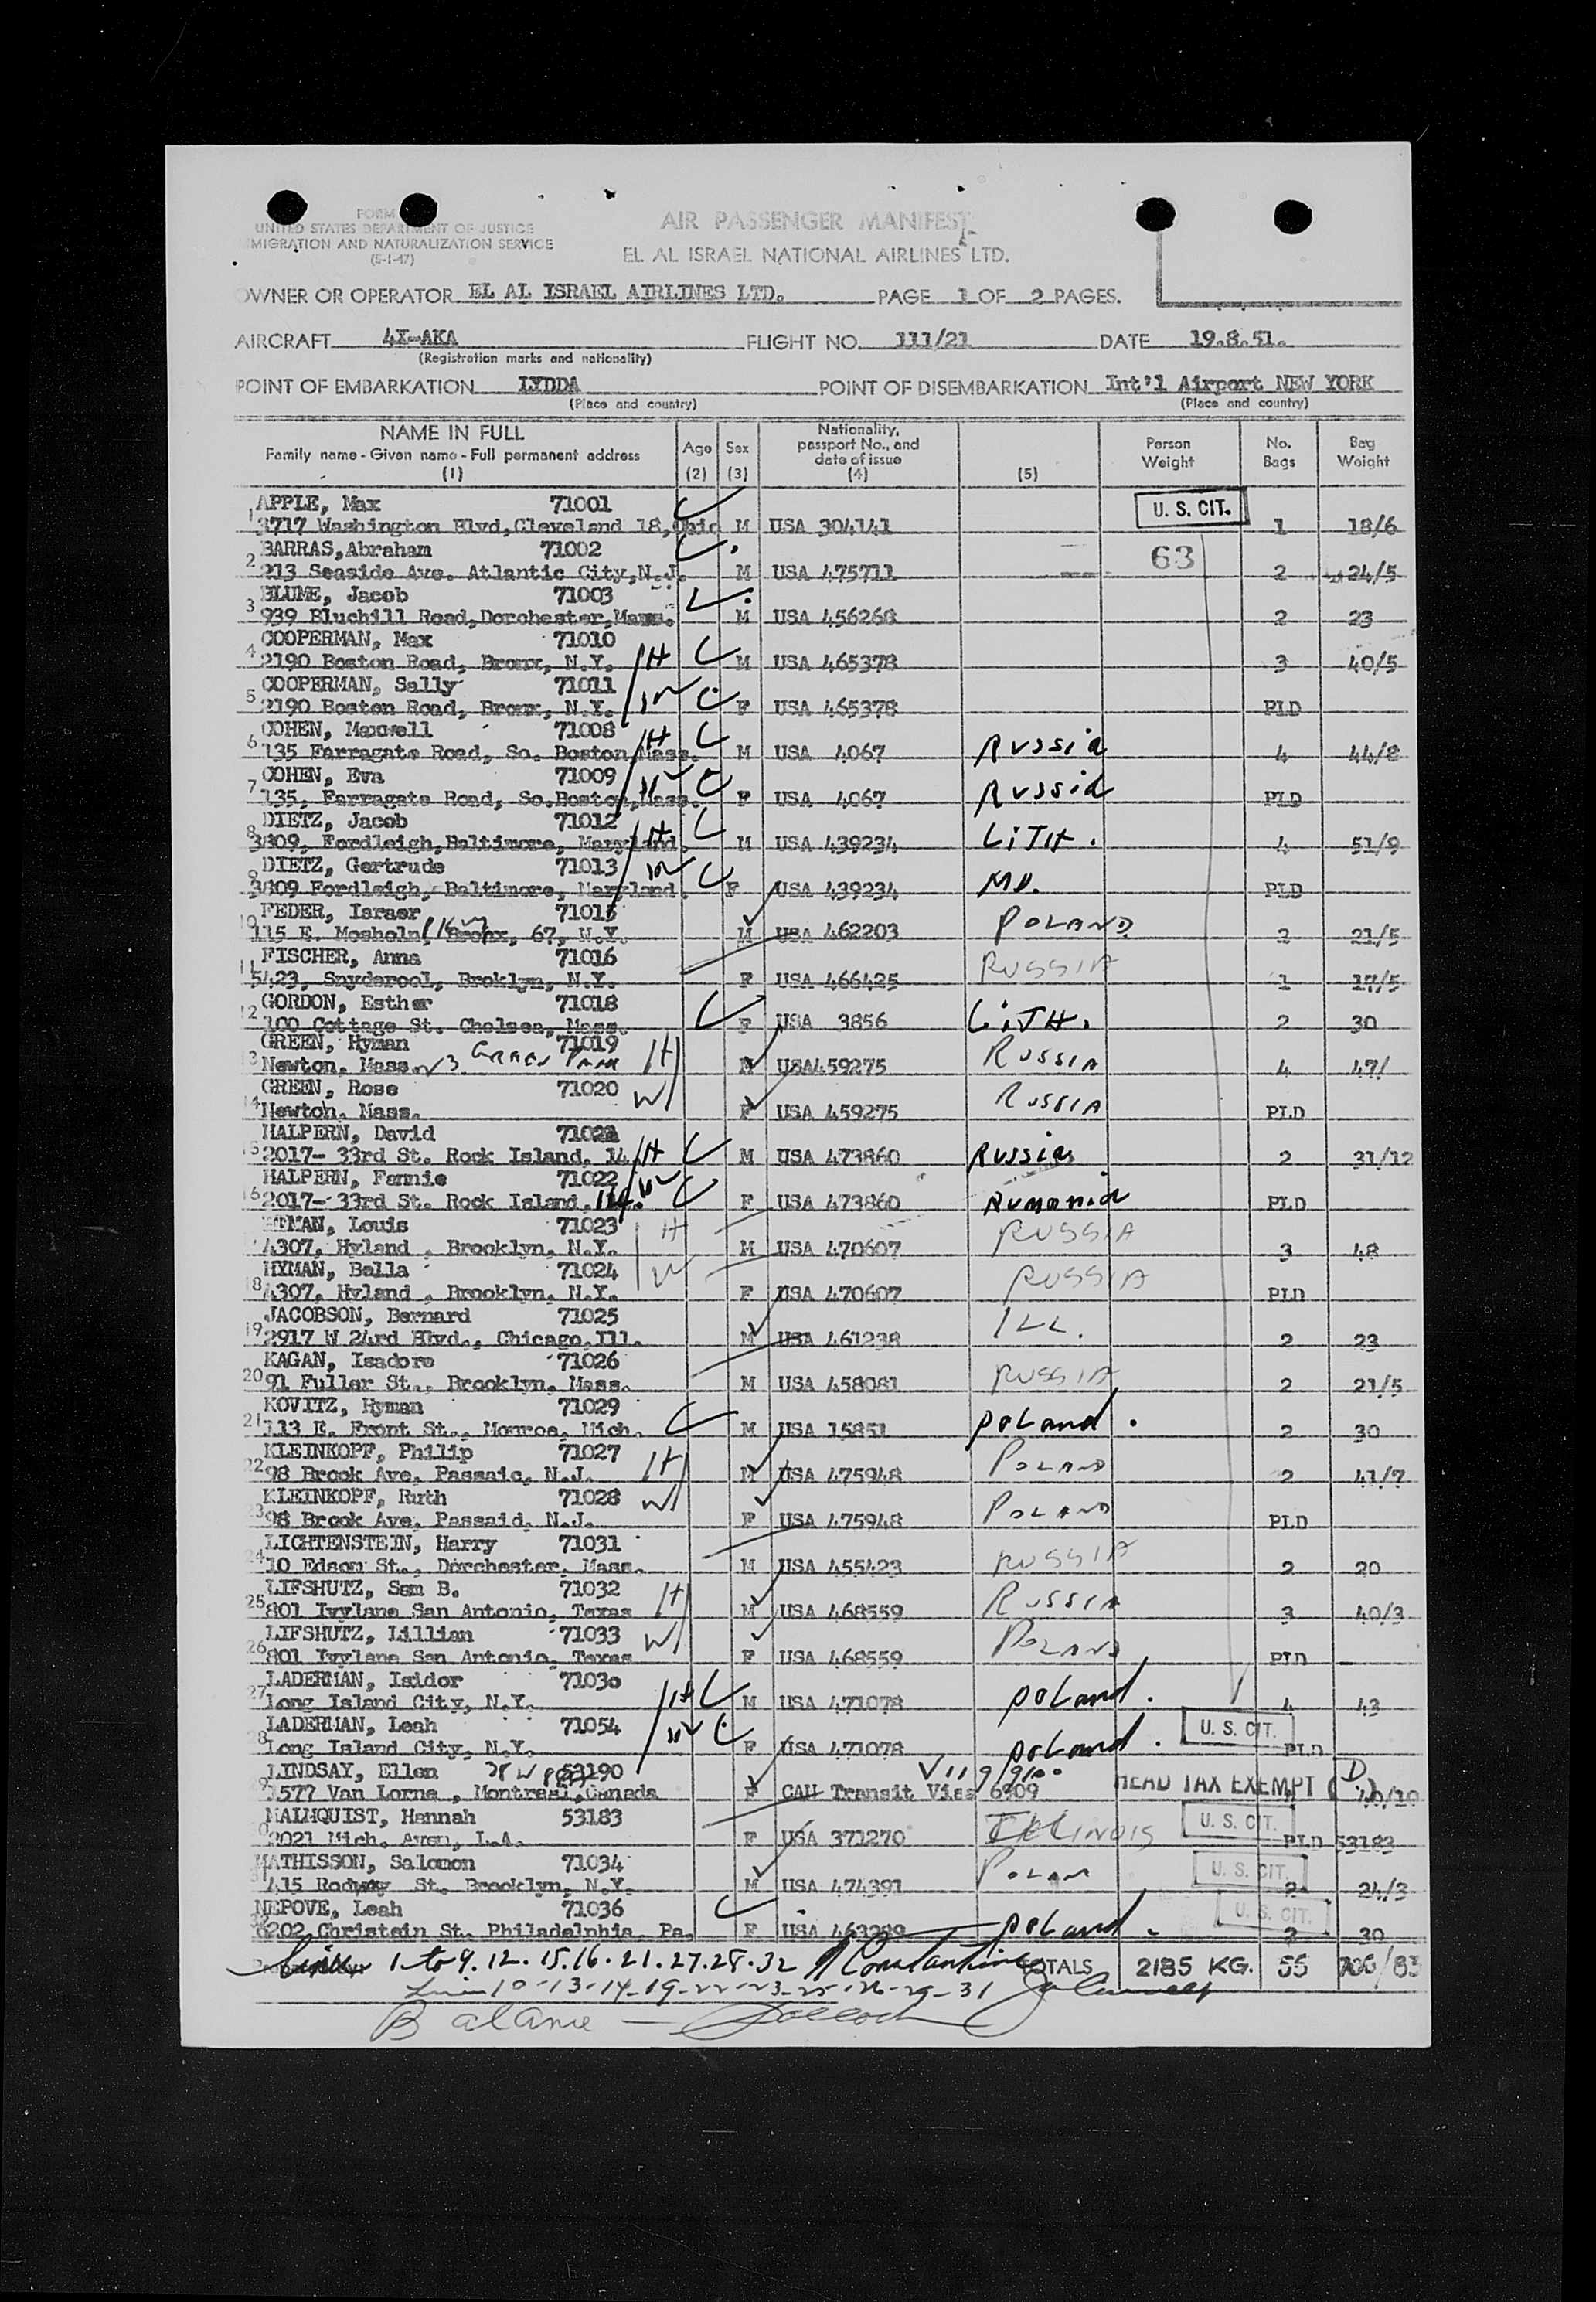 FORM
UNITED STATES DEPARTMENT OF JUSTICE
IMMIGRATION AND NATURALIZATION SERVICE
(5-1-47)
AIR PASSENGER MANIFEST
EL AL ISRAEL NATIONAL AIRLINES LTD.
OWNER OR OPERATOR EL AL ISRAEL AIRLINES LTD. PAGE 1 OF 2 PAGES.
AIRCRAFT 4X-AKA FLIGHT NO. 111/21 DATE 19.8.51.
(Registration marks and nationality)
POINT OF EMBARKATION LYDDA POINT OF DISEMBARKATION Int'l Airport NEW YORK
(Place and country) (Place and country)
NAME IN FULL
Family name - Given name - Full permanent address
(1)
Age
(2)
Sex
(3)
Nationality,
passport No., and
date of issue
(4)
(5)
Person
Weight
No.
Bags
Bag
Weight
APPLE, Max 71001 U. S. CIT.
1 3717 Washington Blvd, Cleveland 18, Ohio M USA 304141 1 18/6
BARRAS, Abraham 71002 63
2 213 Seaside Ave. Atlantic City, N.J. M USA 475711 2 24/5
BLUME, Jacob 71003
3 939 Bluchill Road, Dorchester, Mass. M USA 456268 2 23
COOPERMAN, Max 71010
4 2190 Boston Road, Bronx, N.Y. H M USA 465378 3 40/5
COOPERMAN, Sally 71011
5 2190 Boston Road, Bronx, N.Y. W F USA 465378 PLD
COHEN, Maxwell 71008
6 135 Farragate Road, So. Boston, Mass. H M USA 4067 Russia 4 44/8
COHEN, Eva 71009
7 135, Farragate Road, So.Boston, Mass. W F USA 4067 Russia PLD
DIETZ, Jacob 71012
8 3809, Fordleigh, Baltimore, Maryland. H M USA 439234 LITH. 4 51/9
DIETZ, Gertrude 71013
9 3809 Fordleigh, Baltimore, Maryland. W F USA 439234 MD. PLD
FEDER, Israer 71015
10 115 E. Mosholu Bronx, 67, N.Y. M USA 462203 POLAND 2 21/5
FISCHER, Anna 71016
11 5423, Snyderool, Broklyn, N.Y. F USA 466425 RUSSIA 1 17/5
GORDON, Esther 71018
12 100 Cottage St. Chelsea, Mass. F USA 3856 LITH. 2 30
GREEN, Hyman 71019
13 Newton, Mass. H M USA459275 RUSSIA 4 47/
GREEN, Rose 71020
14 Newton, Mass. W F USA 459275 RUSSIA PLD
HALPERN, David 71021
15 2017- 33rd St. Rock Island, H M USA 473860 Russia 2 31/12
HALPERN, Fannie 71022
16 2017- 33rd St. Rock Island, W F USA 473860 Rumania PLD
HYMAN, Louis 71023
4307, Hyland , Brooklyn, N.Y. H M USA 470607 RUSSIA 3 48
HYMAN, Bella 71024
18 4307, Hyland , Brooklyn, N.Y. W F USA 470607 RUSSIA PLD
JACOBSON, Bernard 71025
19 2917 W 24rd Blvd., Chicago, Ill. M USA 461238 ILL. 2 23
KAGAN, Isadore 71026
20 91 Fuller St., Brooklyn, Mass. M USA 458081 RUSSIA 2 21/5
KOVITZ, Hyman 71029
21 113 E. Front St., Monroe, Mich. M USA 15851 poland. 2 30
KLEINKOPF, Philip 71027
22 98 Brook Ave, Passaic, N.J. H M USA 475948 POLAND 2 41/7
KLEINKOPF, Ruth 71028
23 98 Brook Ave. Passaid, N.J. W F USA 475948 POLAND PLD
LICHTENSTEIN, Harry 71031
24 10 Edson St., Dorchester, Mass. M USA 455423 RUSSIA 2 20
LIFSHUTZ, Sam B. 71032
25 801 Ivylane San Antonio, Texas H M USA 468559 RUSSIA 3 40/3
LIFSHUTZ, Lillian 71033
26 801 Ivylane San Antonio, Texas W F USA 468559 POLAND PLD
LADERMAN, Isidor 71030
27 Long Island City, N.Y. H M USA 471078 poland. 4 43
LADERMAN, Leah 71054 U. S. CIT.
28 Long Island City, N.Y. W F USA 471078 poland. PLD
LINDSAY, Ellen 53190
29 1577 Van Lorne , Montreal, Canada F CAN Transit Visa 6909 HEAD TAX EXEMPT (D.)
MALMQUIST, Hannah 53183 U. S. CIT.
2021 Mich. Aven, L.A. F USA 371270 ILLINOIS PLD 53183
MATHISSON, Salomon 71034 U. S. CIT.
31 415 Rodway St. Brooklyn, N.Y. M USA 474391 POLAN 2 24/3
NEPOVE, Leah 71036 U. S. CIT.
6202 Christein St. Philadelphia, Pa. F USA 463299 poland. 2 30
Lines 1 to 9. 12. 15. 16. 21. 27. 28. 32 Constantine TOTALS 2185 KG. 55 706/83
Lines 10-13-14-19-22-23-25-26-29-31
Balance